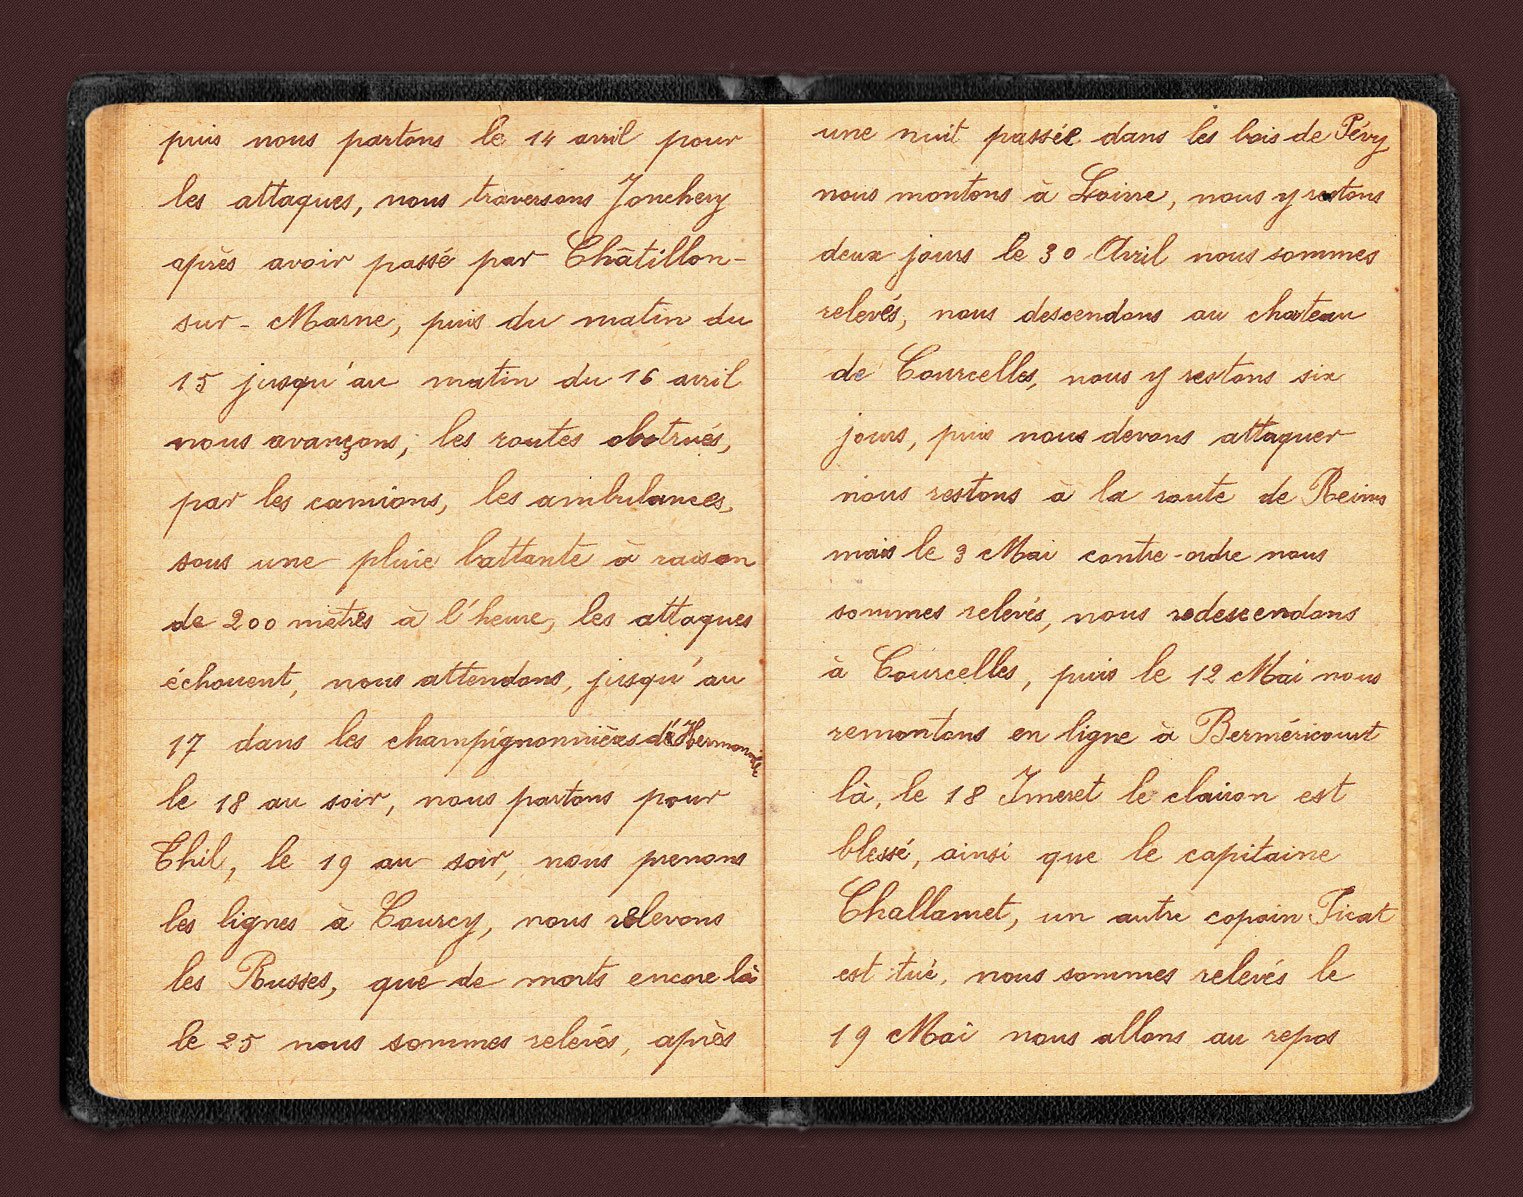 puis nous partons le 14 avril pour
les attaques, nous traversons Jonchery
après avoir passé par Châtillon-
sur-Marne, puis du matin du
15 jusqu'au matin du 16 avril
nous avançons, les routes obstrués,
par les camions, les ambulances,
sous une pluie battante à raison
de 200 mètres à l'heure, les attaques
échouent, nous attendons, jusqu'au
17 dans les champignonnières
le 18 au soir, nous partons pour
Thil, le 19 au soir, nous prenons
les lignes à Courcy, nous relevons
les Russes, que de morts encore là
le 25 nous sommes relevés, après
une nuit passée dans les bois de Pévy
nous montons à Loivre, nous y restons
deux jours le 30 Avril nous sommes
relevés, nous descendons au chateau
de Courcelles, nous y restons six
jours, puis nous devons attaquer
nous restons à la route de Reims
mais le 9 Mai contre-ordre nous
sommes relevés, nous redescendons
à Courcelles, puis le 12 Mai nous
remontons en ligne à Berméricourt
là, le 18 Imeret le clairon est
blessé, ainsi que le capitaine
Challamet, un autre copain Ficat
est tué, nous sommes relevés le
19 Mai nous allons au repos